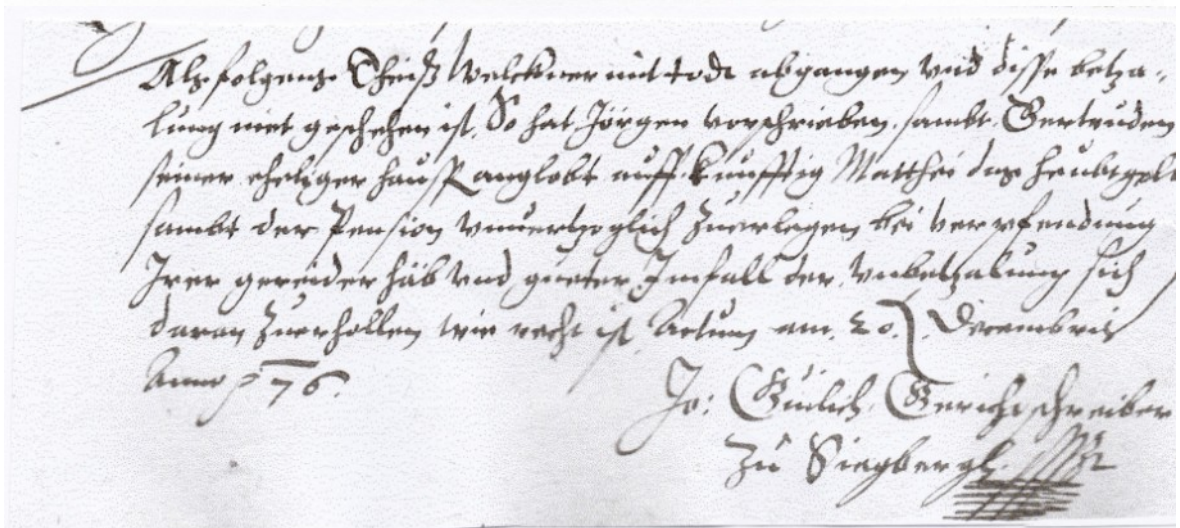 Alß folgens Theiß Welckner mit todt abgangen vnd disse betza-
lung niet geschehen ist, So hat Jörgen vorschrieben sambt Gertruden
seiner eheliger hausfr anglobt auff kunfftig Matthei das heubtgelt
sambt der Pension vnuertzoglich zuerlegen bei verpfendung
Irer gereider häb vnd gueter Imfall der vnbetzalung sich
daran zuerhollen wie recht ist, Actum am 20. Decembris
Anno 76.
Jo: Guilich Gerichtschreiber
zu Siegbergh